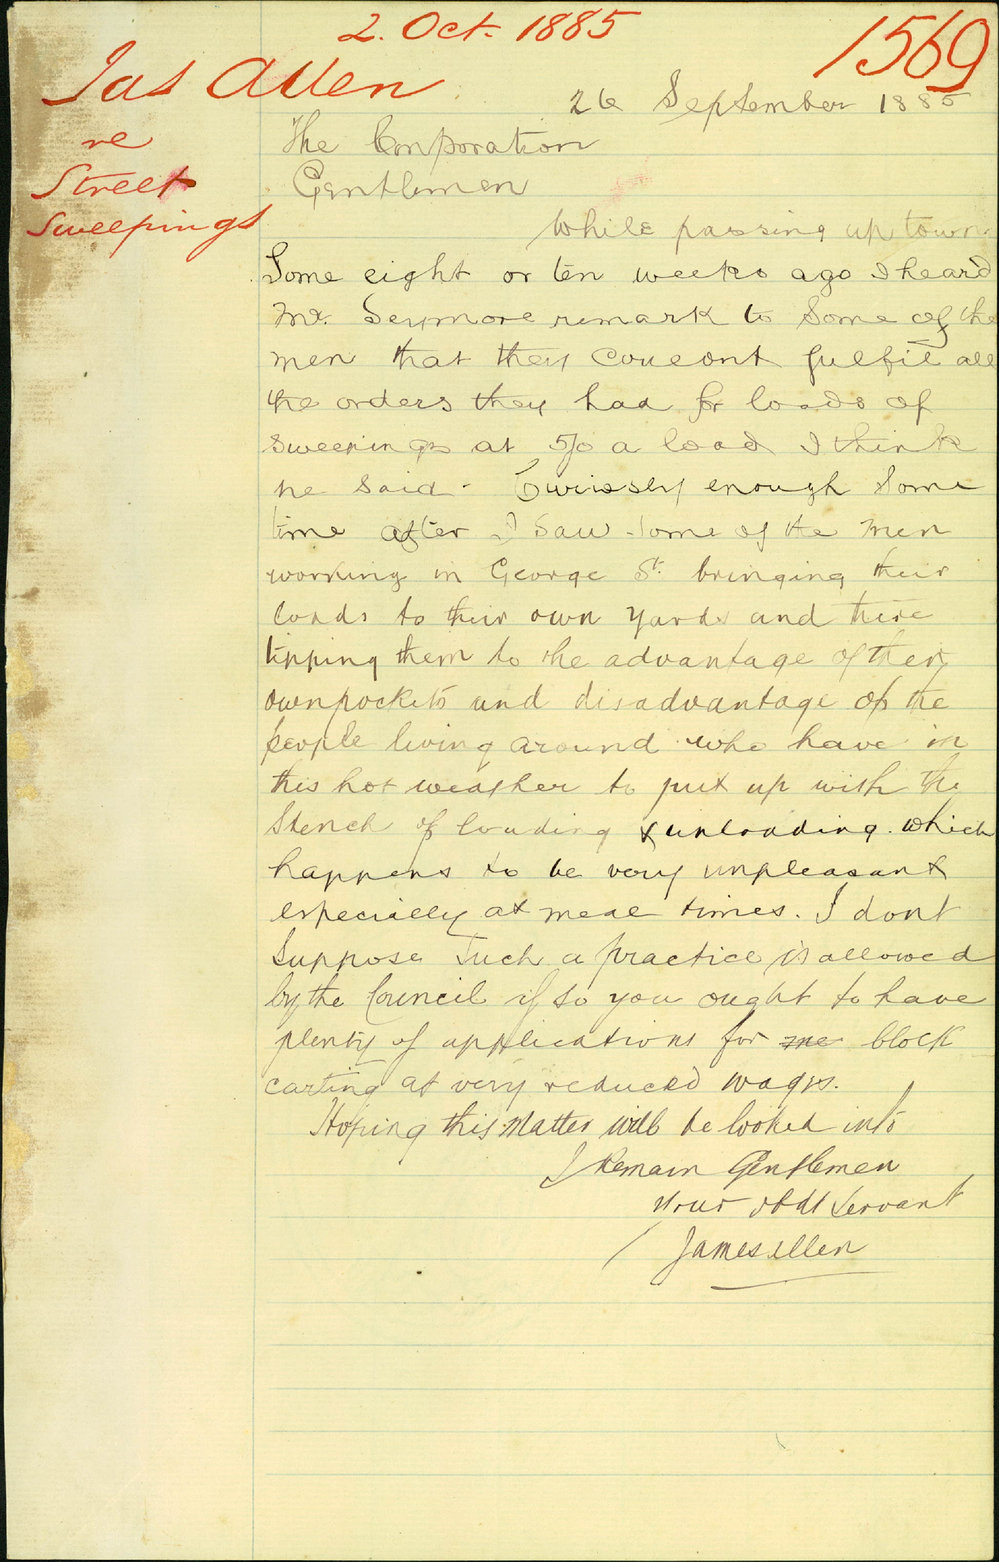 2. Oct. 1885
1569
Jas Allen
re
Street
Sweepings
26 September 1885
The Corporation
Gentlemen
While passing up town
Some eight or ten weeks ago I heard
Mr. Seymore remark to Some of the
men that they Coueont fulfil all
the orders they had for loads of
Sweepings at 5/0 a load I think
he Said. Curiosly enough Some
time after I Saw Some of the Men
working in George St. bringing their
loads to their own yards and there
tipping them to the advantage of their
own pockets and disadvantage of the
people living around who have in
this hot weather to put up with the
Stench of loading & unloading. which
happens to be very unpleasant
especially at meal times. I dont
Suppose Such a practice is allowed
by the Council if so you ought to have
plenty of applications for me block
carting at very reduced wages.
Hoping this Matter will be looked into
I Remain Gentlemen
Your obdt Servant
James Allen